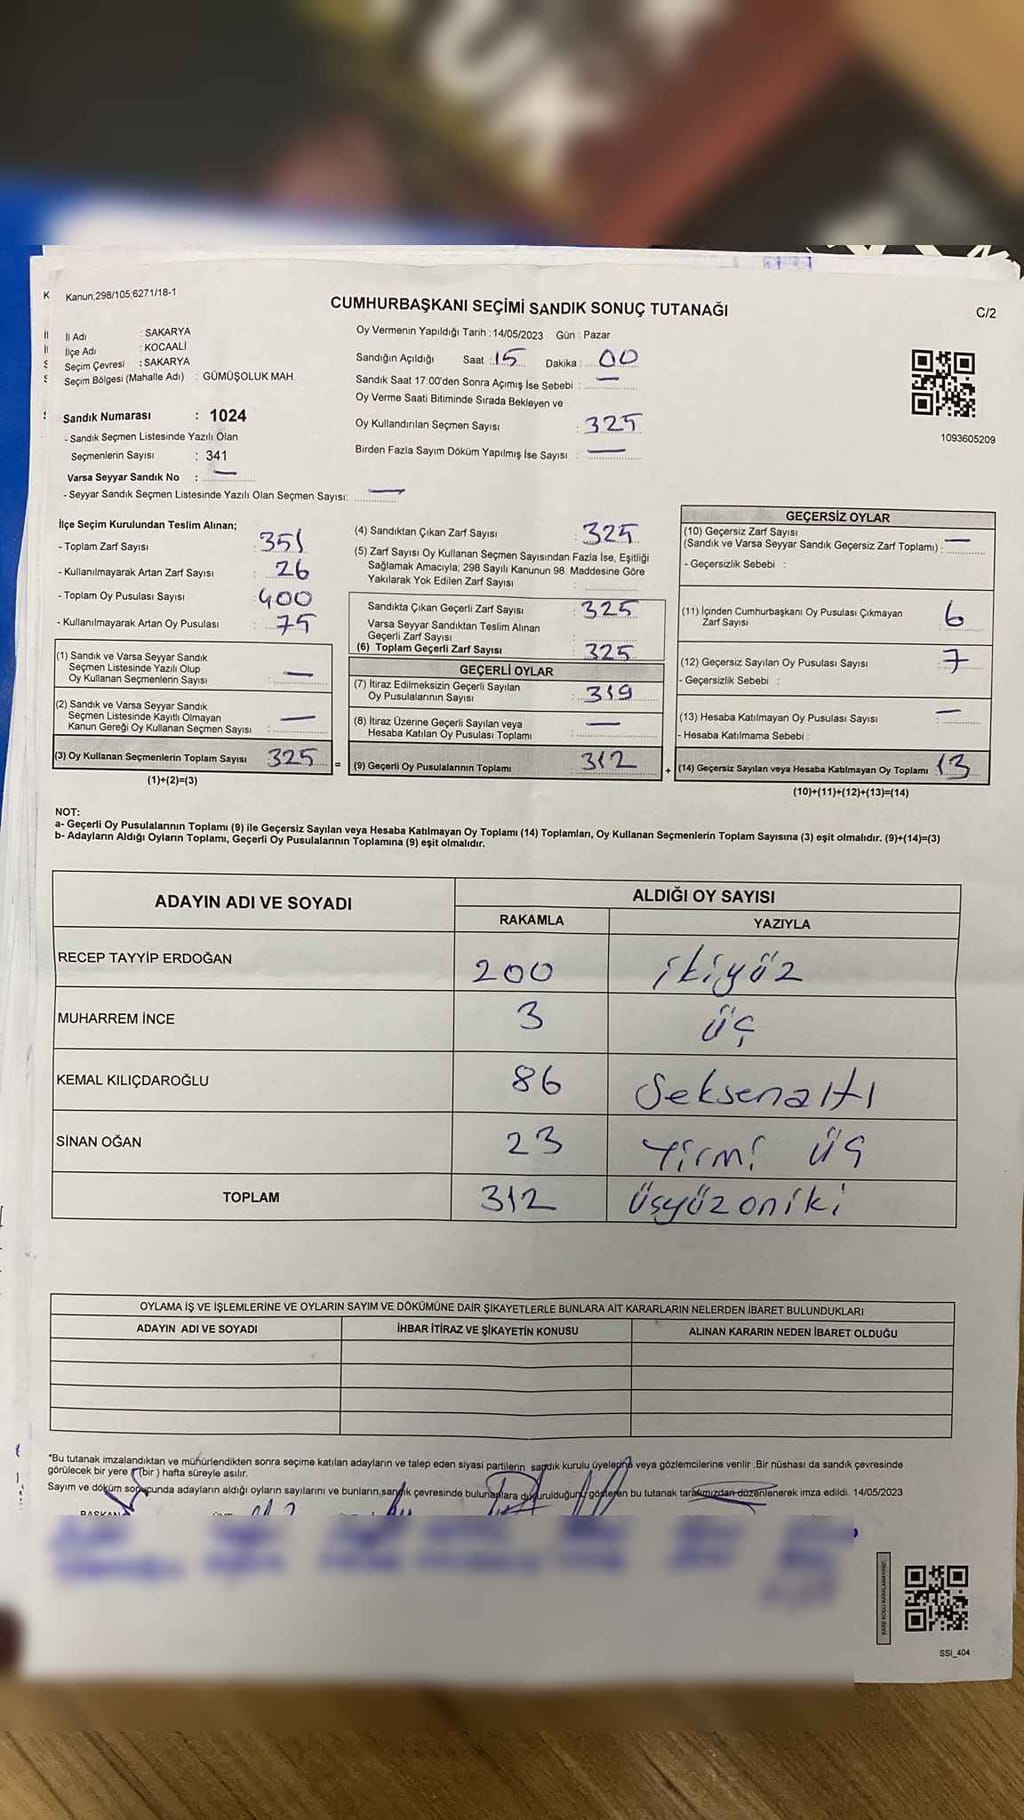 Kanun;298/105;6271/18-1
CUMHURBAŞKANI SEÇİMİ SANDIK SONUÇ TUTANAĞI
C/2
İl Adı : SAKARYA
İlçe Adı : KOCAALİ
Seçim Çevresi : SAKARYA
Seçim Bölgesi (Mahalle Adı) : GÜMÜŞOLUK MAH.
Sandık Numarası : 1024
- Sandık Seçmen Listesinde Yazılı Olan
Seçmenlerin Sayısı : 341
Varsa Seyyar Sandık No : —
- Seyyar Sandık Seçmen Listesinde Yazılı Olan Seçmen Sayısı: —
Oy Vermenin Yapıldığı Tarih : 14/05/2023 Gün : Pazar
Sandığın Açıldığı Saat : 15 Dakika : 00
Sandık Saat 17:00'den Sonra Açımış İse Sebebi : —
Oy Verme Saati Bitiminde Sırada Bekleyen ve
Oy Kullandırılan Seçmen Sayısı : 325
Birden Fazla Sayım Döküm Yapılmış İse Sayısı : —
1093605209
İlçe Seçim Kurulundan Teslim Alınan;
- Toplam Zarf Sayısı : 351
- Kullanılmayarak Artan Zarf Sayısı : 26
- Toplam Oy Pusulası Sayısı : 400
- Kullanılmayarak Artan Oy Pusulası : 75
(1) Sandık ve Varsa Seyyar Sandık
Seçmen Listesinde Yazılı Olup
Oy Kullanan Seçmenlerin Sayısı : —
(2) Sandık ve Varsa Seyyar Sandık
Seçmen Listesinde Kayıtlı Olmayan
Kanun Gereği Oy Kullanan Seçmen Sayısı : —
(3) Oy Kullanan Seçmenlerin Toplam Sayısı 325
(1)+(2)=(3)
(4) Sandıktan Çıkan Zarf Sayısı : 325
(5) Zarf Sayısı Oy Kullanan Seçmen Sayısından Fazla İse, Eşitliği
Sağlamak Amacıyla; 298 Sayılı Kanunun 98. Maddesine Göre
Yakılarak Yok Edilen Zarf Sayısı :
Sandıkta Çıkan Geçerli Zarf Sayısı : 325
Varsa Seyyar Sandıktan Teslim Alınan
Geçerli Zarf Sayısı :
(6) Toplam Geçerli Zarf Sayısı : 325
GEÇERLİ OYLAR
(7) İtiraz Edilmeksizin Geçerli Sayılan
Oy Pusulalarının Sayısı : 319
(8) İtiraz Üzerine Geçerli Sayılan veya
Hesaba Katılan Oy Pusulası Toplamı : —
= (9) Geçerli Oy Pusulalarının Toplamı : 312
GEÇERSİZ OYLAR
(10) Geçersiz Zarf Sayısı
(Sandık ve Varsa Seyyar Sandık Geçersiz Zarf Toplamı) : —
- Geçersizlik Sebebi :
(11) İçinden Cumhurbaşkanı Oy Pusulası Çıkmayan
Zarf Sayısı 6
(12) Geçersiz Sayılan Oy Pusulası Sayısı : 7
- Geçersizlik Sebebi :
(13) Hesaba Katılmayan Oy Pusulası Sayısı : —
- Hesaba Katılmama Sebebi :
+ (14) Geçersiz Sayılan veya Hesaba Katılmayan Oy Toplamı : 13
(10)+(11)+(12)+(13)=(14)
NOT:
a- Geçerli Oy Pusulalarının Toplamı (9) ile Geçersiz Sayılan veya Hesaba Katılmayan Oy Toplamı (14) Toplamları, Oy Kullanan Seçmenlerin Toplam Sayısına (3) eşit olmalıdır. (9)+(14)=(3)
b- Adayların Aldığı Oyların Toplamı, Geçerli Oy Pusulalarının Toplamına (9) eşit olmalıdır.
ADAYIN ADI VE SOYADI
ALDIĞI OY SAYISI
RAKAMLA YAZIYLA
RECEP TAYYİP ERDOĞAN 200 ikiyüz
MUHARREM İNCE 3 üç
KEMAL KILIÇDAROĞLU 86 Seksenaltı
SİNAN OĞAN 23 Yirmi üç
TOPLAM 312 Üçyüzoniki
OYLAMA İŞ VE İŞLEMLERİNE VE OYLARIN SAYIM VE DÖKÜMÜNE DAİR ŞİKAYETLERLE BUNLARA AİT KARARLARIN NELERDEN İBARET BULUNDUKLARI
ADAYIN ADI VE SOYADI İHBAR İTİRAZ VE ŞİKAYETİN KONUSU ALINAN KARARIN NEDEN İBARET OLDUĞU
*Bu tutanak imzalandıktan ve mühürlendikten sonra seçime katılan adayların ve talep eden siyasi partilerin sandık kurulu üyelerine veya gözlemcilerine verilir .Bir nüshası da sandık çevresinde
görülecek bir yere 1 (bir ) hafta süreyle asılır.
Sayım ve döküm sonucunda adayların aldığı oyların sayılarını ve bunların sandık çevresinde bulunanlara duyurulduğunu gösteren bu tutanak tarafımızdan düzenlenerek imza edildi. 14/05/2023
BAŞKAN
SSİ_404